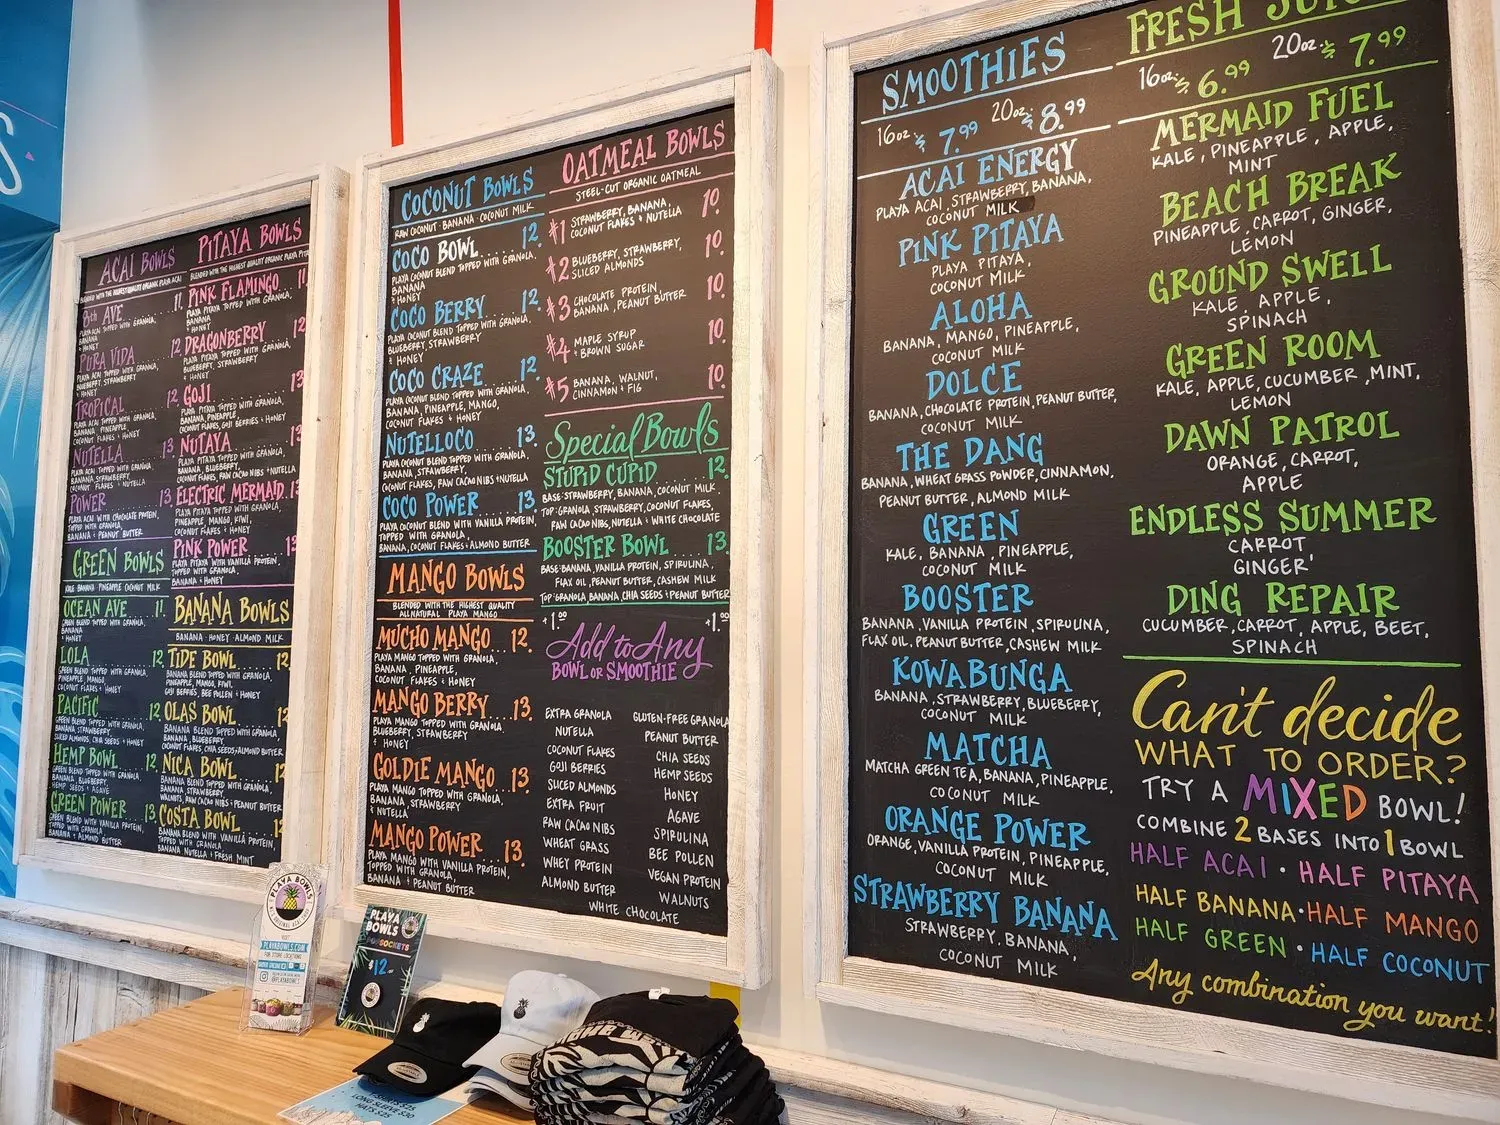 S
ACAI BOWLS
BLENDED WITH THE HIGHEST QUALITY ORGANIC PLAYA ACAI
8th AVE 11.
PLAYA ACAI TOPPED WITH GRANOLA,
BANANA
& HONEY
PURA VIDA 12
PLAYA ACAI TOPPED WITH GRANOLA,
BLUEBERRY, STRAWBERRY
& HONEY
TROPICAL 12
PLAYA ACAI TOPPED WITH GRANOLA,
BANANA, PINEAPPLE,
COCONUT FLAKES & HONEY
NUTELLA 13
PLAYA ACAI TOPPED WITH GRANOLA,
BANANA, STRAWBERRY,
COCONUT FLAKES & NUTELLA
POWER 13
PLAYA ACAI WITH CHOCOLATE PROTEIN,
TOPPED WITH GRANOLA,
BANANA & PEANUT BUTTER
GREEN BOWLS
KALE BANANA PINEAPPLE COCONUT MILK
OCEAN AVE 11.
GREEN BLEND TOPPED WITH GRANOLA,
BANANA
& HONEY
LOLA 12
GREEN BLEND TOPPED WITH GRANOLA,
PINEAPPLE, MANGO,
COCONUT FLAKES & HONEY
PACIFIC 12
GREEN BLEND TOPPED WITH GRANOLA,
BANANA, STRAWBERRY,
SLICED ALMONDS, CHIA SEEDS & HONEY
HEMP BOWL 12
GREEN BLEND TOPPED WITH GRANOLA,
BANANA, BLUEBERRY,
HEMP SEEDS & AGAVE
GREEN POWER 13
GREEN BLEND WITH VANILLA PROTEIN,
TOPPED WITH GRANOLA,
BANANA & ALMOND BUTTER
PITAYA BOWLS
BLENDED WITH THE HIGHEST QUALITY ORGANIC PLAYA PITAYA
PINK FLAMINGO 11
PLAYA PITAYA TOPPED WITH GRANOLA,
BANANA
& HONEY
DRAGONBERRY 12
PLAYA PITAYA TOPPED WITH GRANOLA,
BLUEBERRY, STRAWBERRY
& HONEY
GOJI 13
PLAYA PITAYA TOPPED WITH GRANOLA,
BANANA, PINEAPPLE,
COCONUT FLAKES, GOJI BERRIES & HONEY
NUTAYA 13
PLAYA PITAYA TOPPED WITH GRANOLA,
BANANA, BLUEBERRY,
COCONUT FLAKES, RAW CACAO NIBS & NUTELLA
ELECTRIC MERMAID 13
PLAYA PITAYA TOPPED WITH GRANOLA,
PINEAPPLE, MANGO, KIWI,
COCONUT FLAKES & HONEY
PINK POWER 13
PLAYA PITAYA WITH VANILLA PROTEIN,
TOPPED WITH GRANOLA,
BANANA & HONEY
BANANA BOWLS
BANANA · HONEY · ALMOND MILK
TIDE BOWL 12
BANANA BLEND TOPPED WITH GRANOLA,
PINEAPPLE, MANGO, KIWI,
GOJI BERRIES, BEE POLLEN & HONEY
OLAS BOWL 12
BANANA BLEND TOPPED WITH GRANOLA,
BANANA, BLUEBERRY,
COCONUT FLAKES, CHIA SEEDS & ALMOND BUTTER
NICA BOWL 12
BANANA BLEND TOPPED WITH GRANOLA,
BANANA, STRAWBERRY,
WALNUTS, RAW CACAO NIBS & PEANUT BUTTER
COSTA BOWL 12
BANANA BLEND WITH VANILLA PROTEIN,
TOPPED WITH GRANOLA,
BANANA, NUTELLA & FRESH MINT
COCONUT BOWLS
RAW COCONUT · BANANA · COCONUT MILK
COCO BOWL 12.
PLAYA COCONUT BLEND TOPPED WITH GRANOLA,
BANANA
& HONEY
COCO BERRY 12.
PLAYA COCONUT BLEND TOPPED WITH GRANOLA,
BLUEBERRY, STRAWBERRY
& HONEY
COCO CRAZE 12.
PLAYA COCONUT BLEND TOPPED WITH GRANOLA,
BANANA, PINEAPPLE, MANGO,
COCONUT FLAKES & HONEY
NUTELLOCO 13.
PLAYA COCONUT BLEND TOPPED WITH GRANOLA,
BANANA, STRAWBERRY,
COCONUT FLAKES, RAW CACAO NIBS & NUTELLA
COCO POWER 13
PLAYA COCONUT BLEND WITH VANILLA PROTEIN,
TOPPED WITH GRANOLA,
BANANA, COCONUT FLAKES & ALMOND BUTTER
MANGO BOWLS
BLENDED WITH THE HIGHEST QUALITY
ALL NATURAL PLAYA MANGO
MUCHO MANGO 12.
PLAYA MANGO TOPPED WITH GRANOLA,
BANANA, PINEAPPLE,
COCONUT FLAKES & HONEY
MANGO BERRY 13.
PLAYA MANGO TOPPED WITH GRANOLA,
BLUEBERRY, STRAWBERRY
& HONEY
GOLDIE MANGO 13.
PLAYA MANGO TOPPED WITH GRANOLA,
BANANA, STRAWBERRY
& NUTELLA
MANGO POWER 13.
PLAYA MANGO WITH VANILLA PROTEIN,
TOPPED WITH GRANOLA,
BANANA & PEANUT BUTTER
OATMEAL BOWLS
STEEL-CUT ORGANIC OATMEAL
#1 STRAWBERRY, BANANA, 10.
COCONUT FLAKES & NUTELLA
#2 BLUEBERRY, STRAWBERRY, 10.
SLICED ALMONDS
#3 CHOCOLATE PROTEIN, 10.
BANANA, PEANUT BUTTER
#4 MAPLE SYRUP 10.
& BROWN SUGAR
#5 BANANA, WALNUT, 10.
CINNAMON & FIG
Special Bowls
STUPID CUPID 12.
BASE: STRAWBERRY, BANANA, COCONUT MILK
TOP: GRANOLA, STRAWBERRY, COCONUT FLAKES,
RAW CACAO NIBS, NUTELLA & WHITE CHOCOLATE
BOOSTER BOWL 13.
BASE: BANANA, VANILLA PROTEIN, SPIRULINA,
FLAX OIL, PEANUT BUTTER, CASHEW MILK
TOP: GRANOLA, BANANA, CHIA SEEDS & PEANUT BUTTER
+1.00 Add to Any +1.00
BOWL OR SMOOTHIE
EXTRA GRANOLA
NUTELLA
COCONUT FLAKES
GOJI BERRIES
SLICED ALMONDS
EXTRA FRUIT
RAW CACAO NIBS
WHEAT GRASS
WHEY PROTEIN
ALMOND BUTTER
GLUTEN-FREE GRANOLA
PEANUT BUTTER
CHIA SEEDS
HEMP SEEDS
HONEY
AGAVE
SPIRULINA
BEE POLLEN
VEGAN PROTEIN
WALNUTS
WHITE CHOCOLATE
SMOOTHIES
16oz: $7.99 20oz: $8.99
ACAI ENERGY
PLAYA ACAI, STRAWBERRY, BANANA,
COCONUT MILK
PINK PITAYA
PLAYA PITAYA,
COCONUT MILK
ALOHA
BANANA, MANGO, PINEAPPLE,
COCONUT MILK
DOLCE
BANANA, CHOCOLATE PROTEIN, PEANUT BUTTER,
COCONUT MILK
THE DANG
BANANA, WHEAT GRASS POWDER, CINNAMON,
PEANUT BUTTER, ALMOND MILK
GREEN
KALE, BANANA, PINEAPPLE,
COCONUT MILK
BOOSTER
BANANA, VANILLA PROTEIN, SPIRULINA,
FLAX OIL, PEANUT BUTTER, CASHEW MILK
KOWABUNGA
BANANA, STRAWBERRY, BLUEBERRY,
COCONUT MILK
MATCHA
MATCHA GREEN TEA, BANANA, PINEAPPLE,
COCONUT MILK
ORANGE POWER
ORANGE, VANILLA PROTEIN, PINEAPPLE,
COCONUT MILK
STRAWBERRY BANANA
STRAWBERRY, BANANA,
COCONUT MILK
FRESH JUICE
16oz: $6.99 20oz: $7.99
MERMAID FUEL
KALE, PINEAPPLE, APPLE,
MINT
BEACH BREAK
PINEAPPLE, CARROT, GINGER,
LEMON
GROUND SWELL
KALE, APPLE,
SPINACH
GREEN ROOM
KALE, APPLE, CUCUMBER, MINT,
LEMON
DAWN PATROL
ORANGE, CARROT,
APPLE
ENDLESS SUMMER
CARROT,
GINGER
DING REPAIR
CUCUMBER, CARROT, APPLE, BEET,
SPINACH
Can't decide
WHAT TO ORDER?
TRY A MIXED BOWL!
COMBINE 2 BASES INTO 1 BOWL
HALF ACAI · HALF PITAYA
HALF BANANA · HALF MANGO
HALF GREEN · HALF COCONUT
Any combination you want!
PLAYA BOWLS
VISIT
PLAYABOWLS.COM
FOR STORE LOCATIONS
@PLAYABOWLS
PLAYA
BOWLS
POPSOCKETS
$12.00
SHIRTS $25
LONG SLEEVE $30
HATS $25